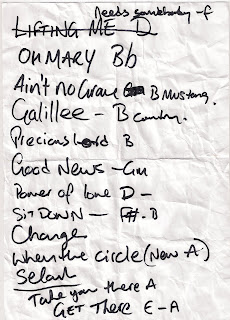 Needs
LIFTING ME D
OH MARY Bb
Ain't no Grave B Mustang.
Galillee - B Country.
Precious Lord B
Good News - Gm
Power of love D -
Sit DOWN - F#. B
Change
When the circle (New A.)
Selah
Take you there A
GET There E - A